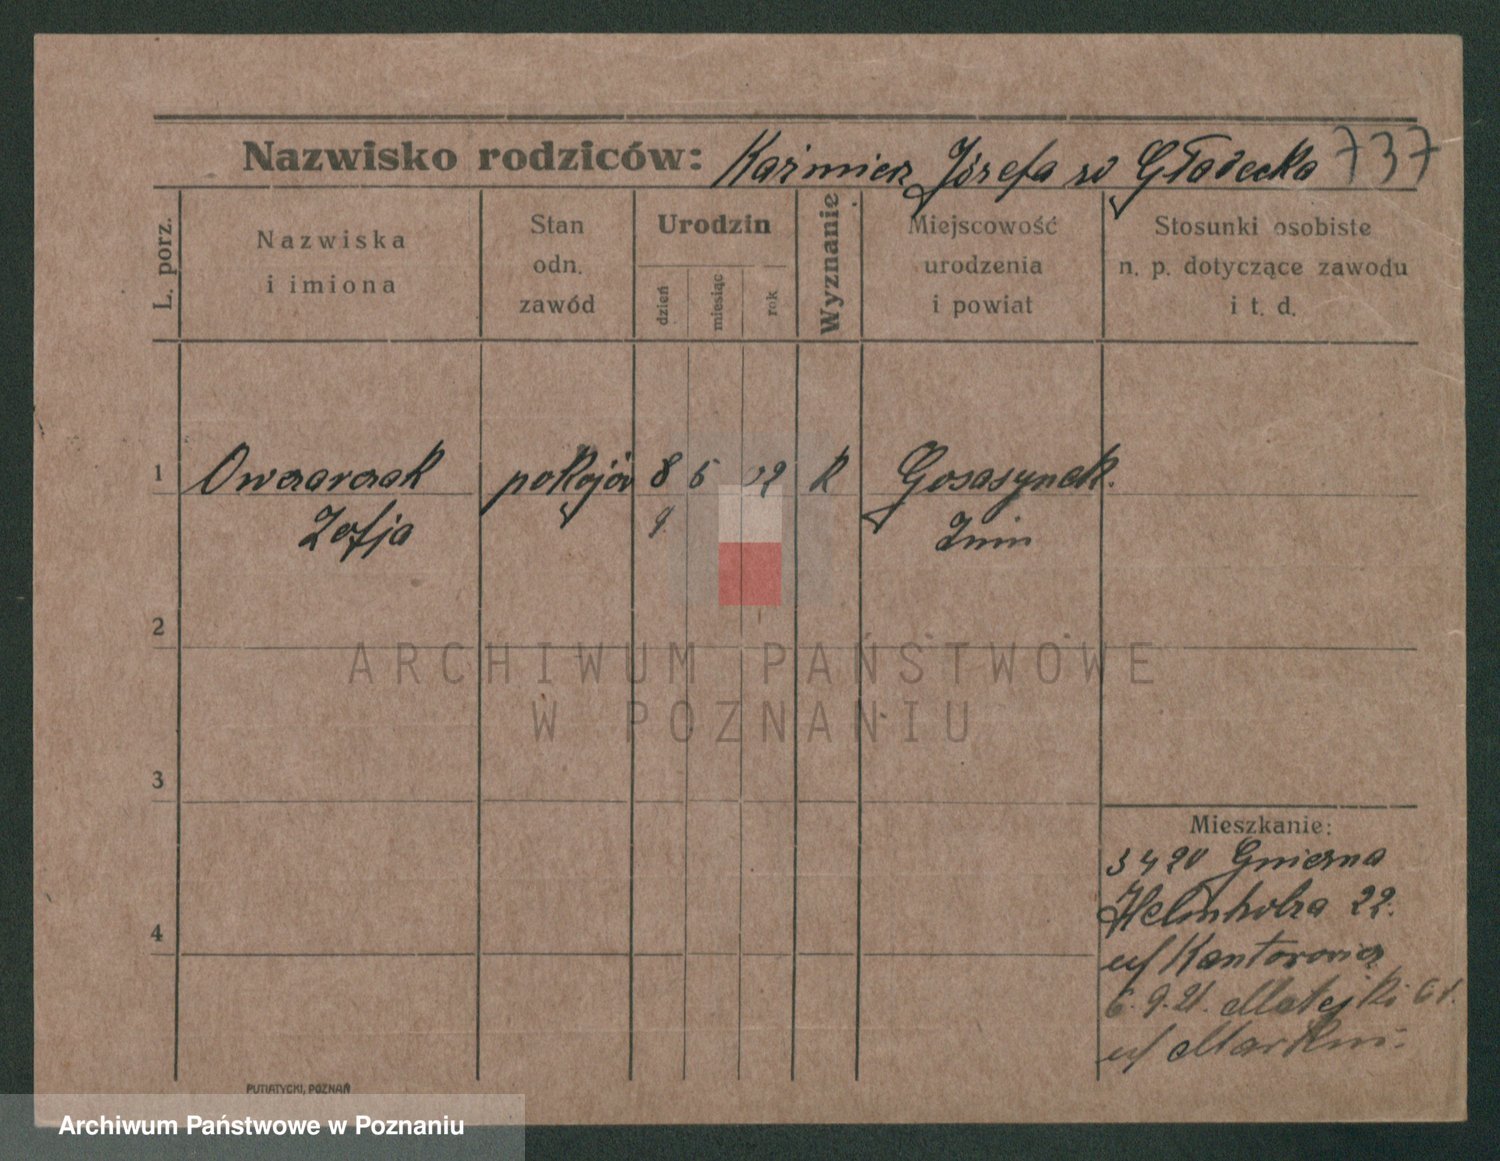 Nazwisko rodziców: Kaźmierz Józefa w Gładecka 737
L. porz.
Nazwiska
i imiona
Stan
odn.
zawód
Urodzin
dzień
miesiąc
rok
Wyznanie
Miejscowość
urodzenia
i powiat
Stosunki osobiste
n. p. dotyczące zawodu
i t. d.
1 Owczarczak pokojów 8 5 02 K
Zofja 9.
Żnin
2
ARCHIWUM PAŃSTWOWE
W POZNANIU
3
Mieszkanie:
3 4 20 Gniezna
Helmholza 22.
u/ Kantorowicz
4
6.9.21. Matejki 61.
u/
PUTIATYCKI, POZNAŃ
Archiwum Państwowe w Poznaniu